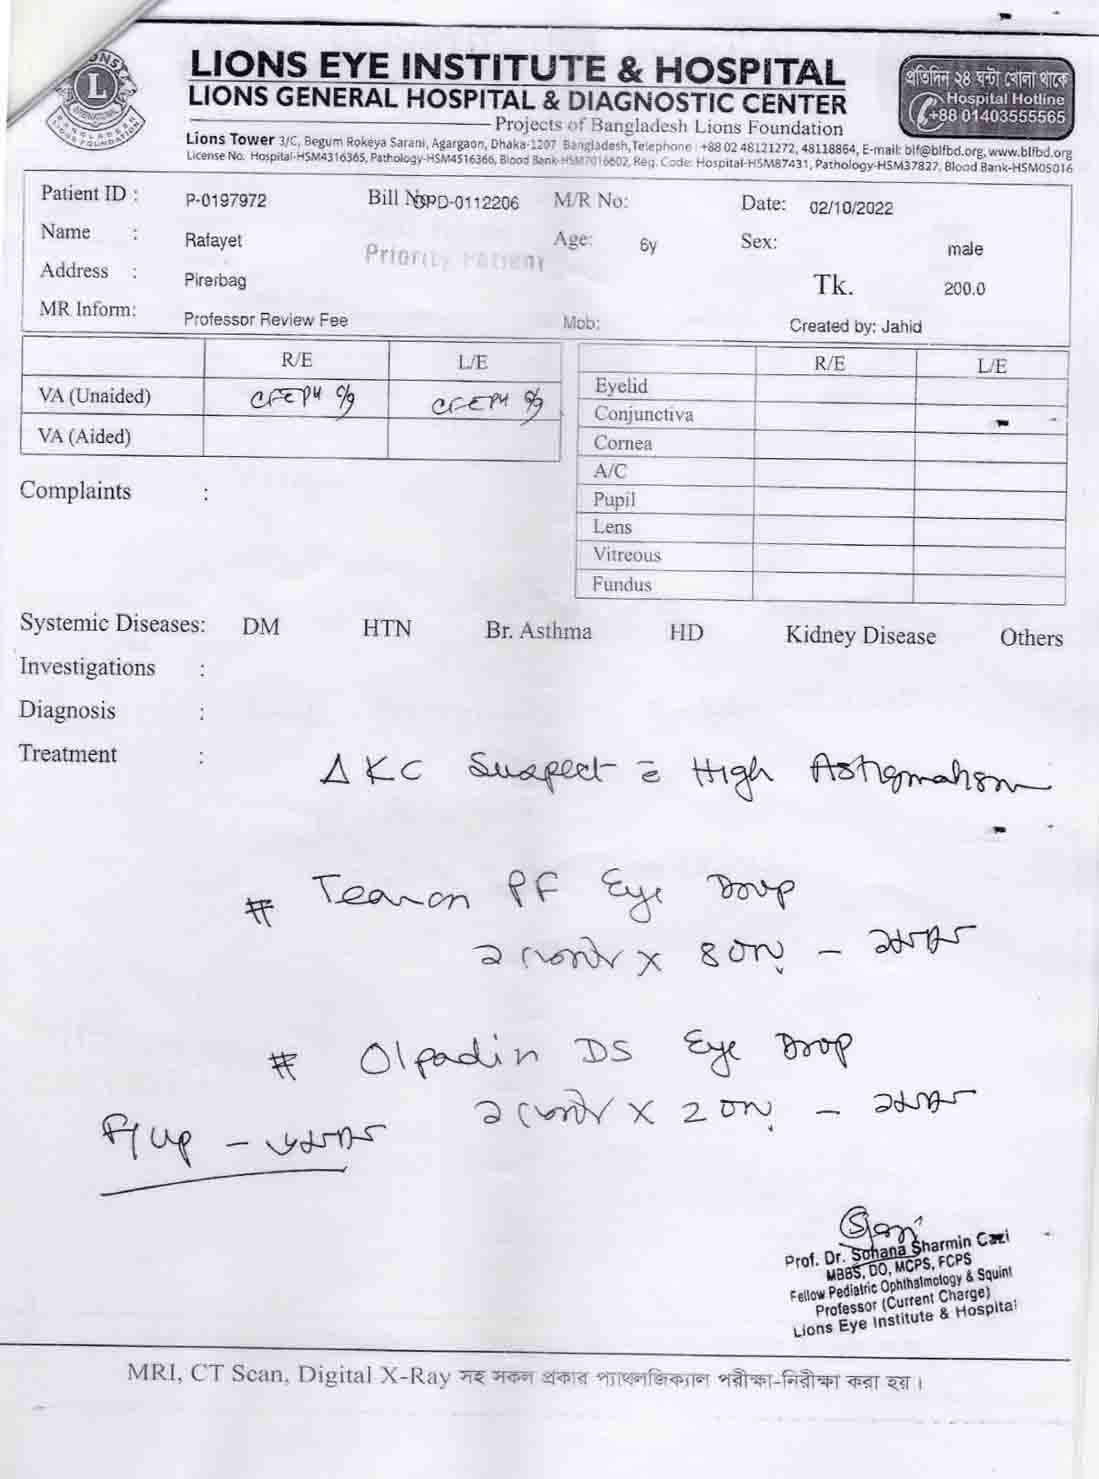 LIONS EYE INSTITUTE & HOSPITAL
LIONS GENERAL HOSPITAL & DIAGNOSTIC CENTER
Projects of Bangladesh Lions Foundation
প্রতিদিন ২৪ ঘন্টা খোলা থাকে
Hospital Hotline
+88 01403555565
Lions Tower 3/C, Begum Rokeya Sarani, Agargaon, Dhaka-1207 Bangladesh,Telephone : +88 02 48121272, 48118864, E-mail: blf@blfbd.org, www.blfbd.org
License No. Hospital-HSM4316365, Pathology-HSM4516366, Blood Bank-HSM7016602, Reg. Code: Hospital-HSM87431, Pathology-HSM37827, Blood Bank-HSM05016
Patient ID : P-0197972 Bill No OPD-0112206 M/R No: Date: 02/10/2022
Name : Rafayet Age: 6y Sex: male
Priority Patient
Address : Pirerbag Tk. 200.0
MR Inform: Professor Review Fee Mob: Created by: Jahid
R/E L/E
VA (Unaided)
VA (Aided)
R/E L/E
Eyelid
Conjunctiva
Cornea
A/C
Pupil
Lens
Vitreous
Fundus
Complaints :
Systemic Diseases: DM HTN Br. Asthma HD Kidney Disease Others
Investigations :
Diagnosis :
Treatment :
Δ KC Suspect c̄ High Astigmatism
# Tearon PF Eye Drop
১ ফোটা × ৪ বার
# Olpadin DS Eye Drop
১ ফোটা × ২ বার
F/up
Prof. Dr. Sohana Sharmin Cazi
MBBS, DO, MCPS, FCPS
Fellow Pediatric Ophthalmology & Squint
Professor (Current Charge)
Lions Eye Institute & Hospital
MRI, CT Scan, Digital X-Ray সহ সকল প্রকার প্যাথলজিক্যাল পরীক্ষা-নিরীক্ষা করা হয়।